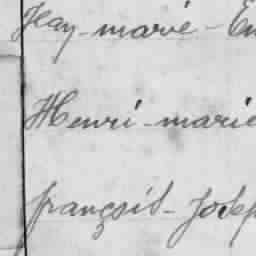 Jean-marie-Em
Henri-marie
françois-Josep